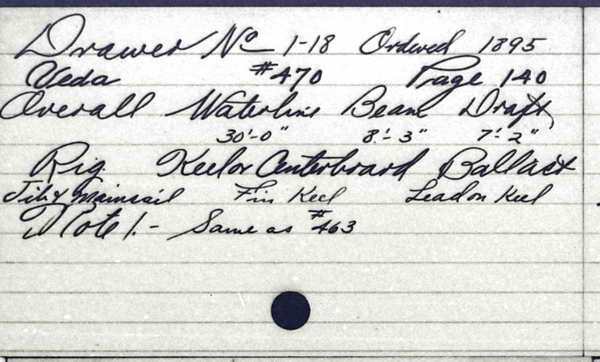 Drawer No 1-18 Ordered 1895
Veda #470 Page 140
Overall Waterline Beam Draft
30'-0" 8'-3" 7'-2"
Rig Keel or Centerboard Ballast
Jib & Mainsail Fin Keel Lead on Keel
Note 1.- Same as #463